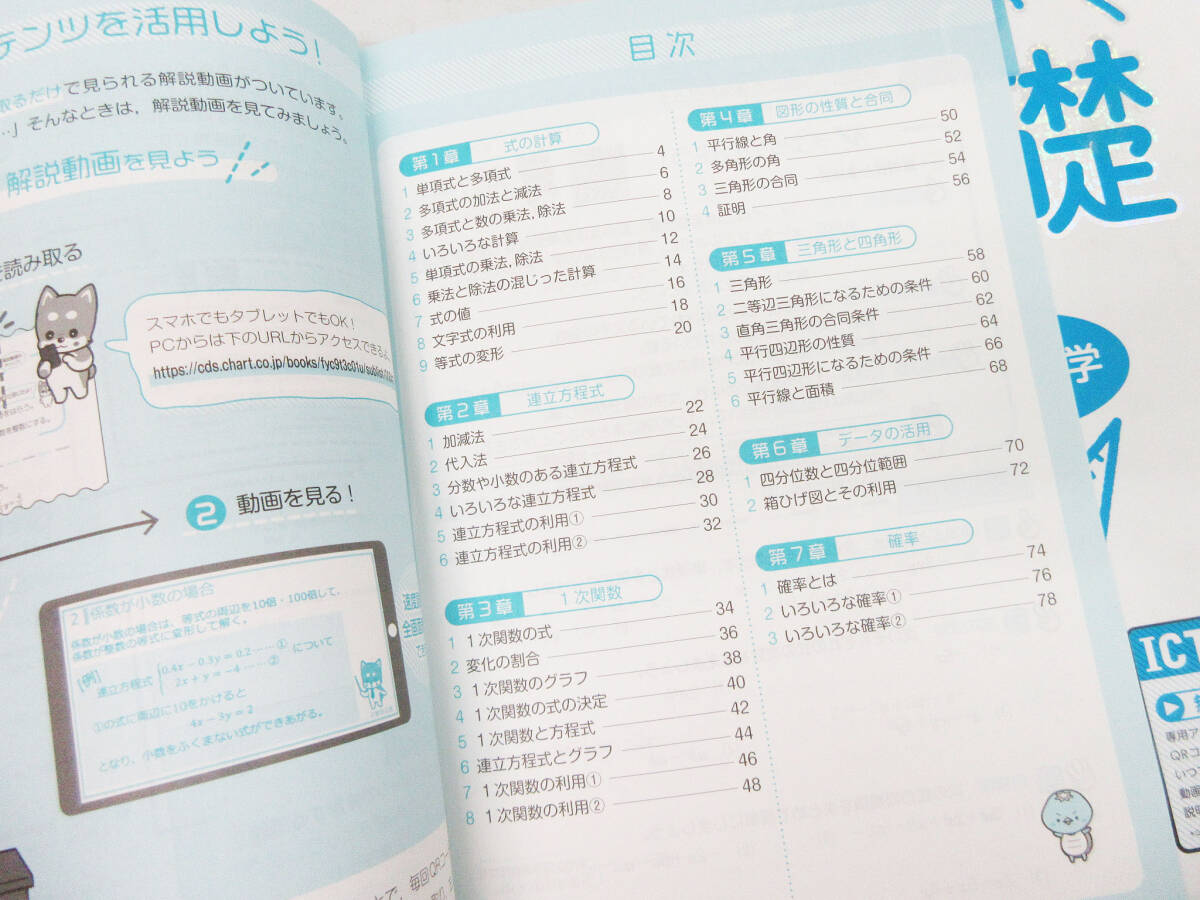 テンツを活用しよう!
取るだけで見られる解説動画がついています。
…」そんなときは,解説動画を見てみましょう。
解説動画を見よう
を読み取る
スマホでもタブレットでもOK!
PCからは下のURLからアクセスできるよ
https://cds.chart.co.jp/books/
2 動画を見る!
2 係数が小数の場合
係数が小数の場合は、等式の両辺を10倍・100倍して,
係数が整数の等式に変形して解く。
[例]
連立方程式
0.4x-0.3y=0.2……①
2x+y=-4……②
について
①の式に両辺に10をかけると
4x-3y=2
となり、小数をふくまない式ができあがる。
目次
第1章 式の計算
1 単項式と多項式 4
2 多項式の加法と減法 6
3 多項式と数の乗法,除法 8
4 いろいろな計算 10
5 単項式の乗法,除法 12
6 乗法と除法の混じった計算 14
7 式の値 16
8 文字式の利用 18
9 等式の変形 20
第2章 連立方程式
1 加減法 22
2 代入法 24
3 分数や小数のある連立方程式 26
4 いろいろな連立方程式 28
5 連立方程式の利用① 30
6 連立方程式の利用② 32
第3章 1次関数
1 1次関数の式 34
2 変化の割合 36
3 1次関数のグラフ 38
4 1次関数の式の決定 40
5 1次関数と方程式 42
6 連立方程式とグラフ 44
7 1次関数の利用① 46
8 1次関数の利用② 48
第4章 図形の性質と合同
1 平行線と角 50
2 多角形の角 52
3 三角形の合同 54
4 証明 56
第5章 三角形と四角形
1 三角形 58
2 二等辺三角形になるための条件 60
3 直角三角形の合同条件 62
4 平行四辺形の性質 64
5 平行四辺形になるための条件 66
6 平行線と面積 68
第6章 データの活用
1 四分位数と四分位範囲 70
2 箱ひげ図とその利用 72
第7章 確率
1 確率とは 74
2 いろいろな確率① 76
3 いろいろな確率② 78
礎
学
ICT
専用ア
QRコ
いつ
動画
説明